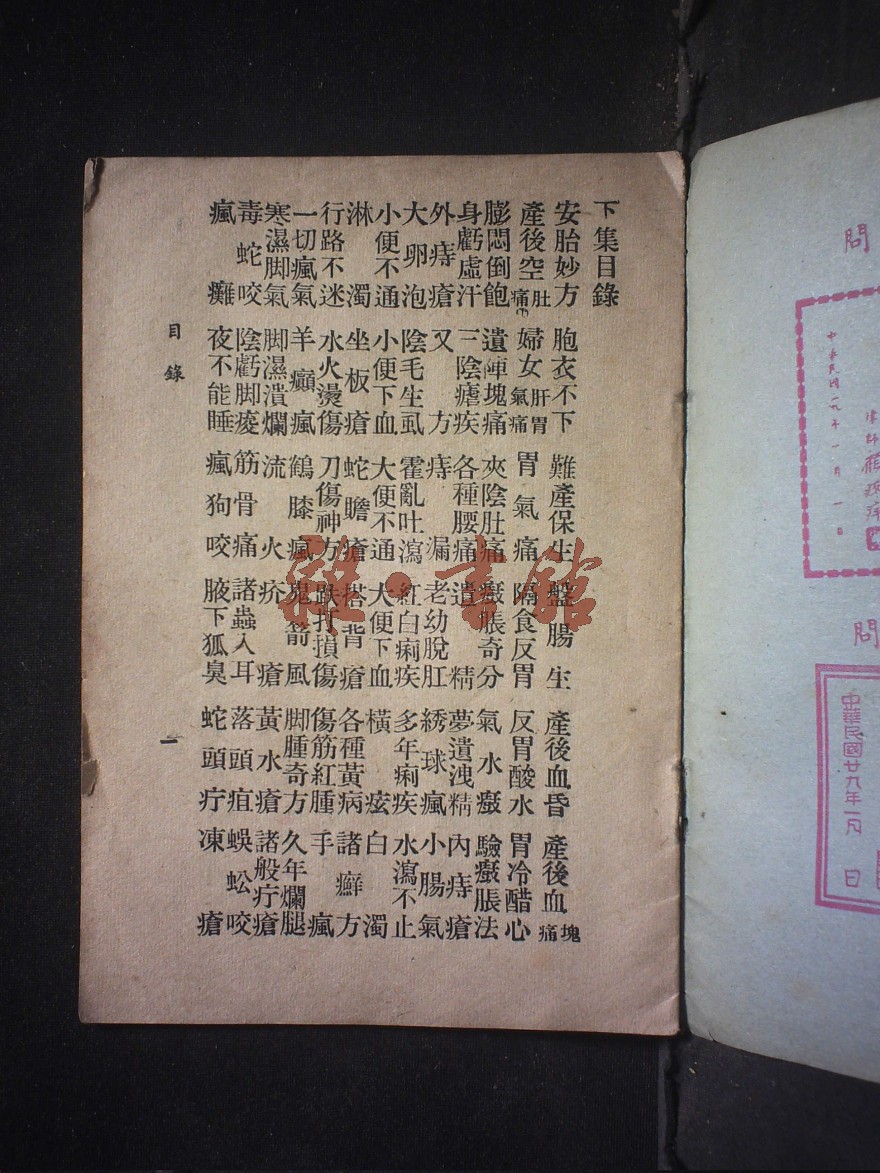 下集目錄
安胎妙方 胞衣不下 難產保生 盤腸生 產後血昏 產後血塊痛
產後空肚痛 婦女肝胃氣痛 胃氣痛 隔食反胃 反胃酸水 胃冷醋心
膨悶倒飽 遺陣塊痛 夾陰肚痛 癥脹奇分 氣水癥 驗癥脹法
身虧虛汗 三陰瘧疾 各種腰痛 遺精 夢遺洩精 內痔瘡
外痔瘡 又方 痔漏 老幼脫肛 綉球瘋 小腸氣
大卵泡 陰毛生虱 霍亂吐瀉 紅白痢疾 多年痢疾 水瀉不止
小便不通 小便下血 大便不通 大便下血 橫痃 白濁
淋濁 坐板瘡 蛇瞻瘡 搭背瘡 各種黃病 諸癬方
行路不迷 水火燙傷 刀傷神方 跌打損傷 傷筋紅腫 手瘋
一切瘋氣 羊癲瘋 鶴膝瘋 鬼箭風 脚腫奇方 久年爛腿
寒濕脚氣 脚濕潰爛 流火 疥瘡 黃水瘡 諸般疔瘡
毒蛇咬 陰虧脚痠 筋骨痛 諸蟲入耳 落頭疽 蜈蚣咬
瘋癱 夜不能睡 瘋狗咬 腋下狐臭 蛇頭疔 凍瘡
目錄 一
雜·書館
問
中華民國廿九年一月一日
問
中華民國廿九年一月 日